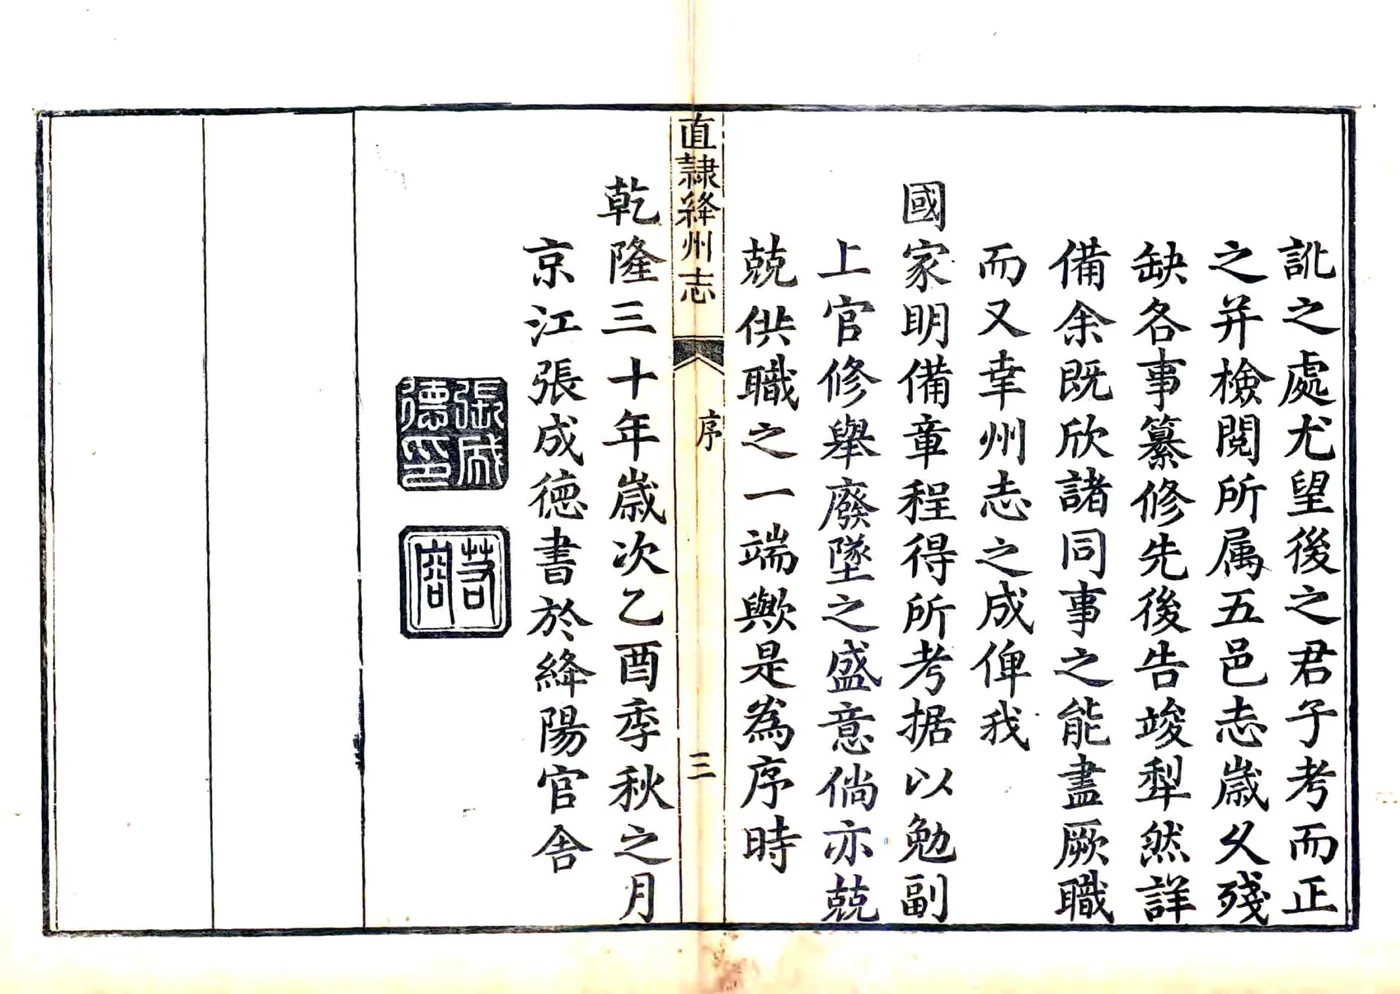 訛之處尤望後之君子考而正
之并檢閱所属五邑志歲久殘
缺各事纂修先後告竣犁然詳
備余既欣諸同事之能盡厥職
而又幸州志之成俾我
國家明備章程得所考据以勉副
上官修舉廢墜之盛意倘亦兢
兢供職之一端歟是為序時
直隷絳州志
序
三
乾隆三十年歲次乙酉季秋之月
京江張成德書於絳陽官舍
張成德印